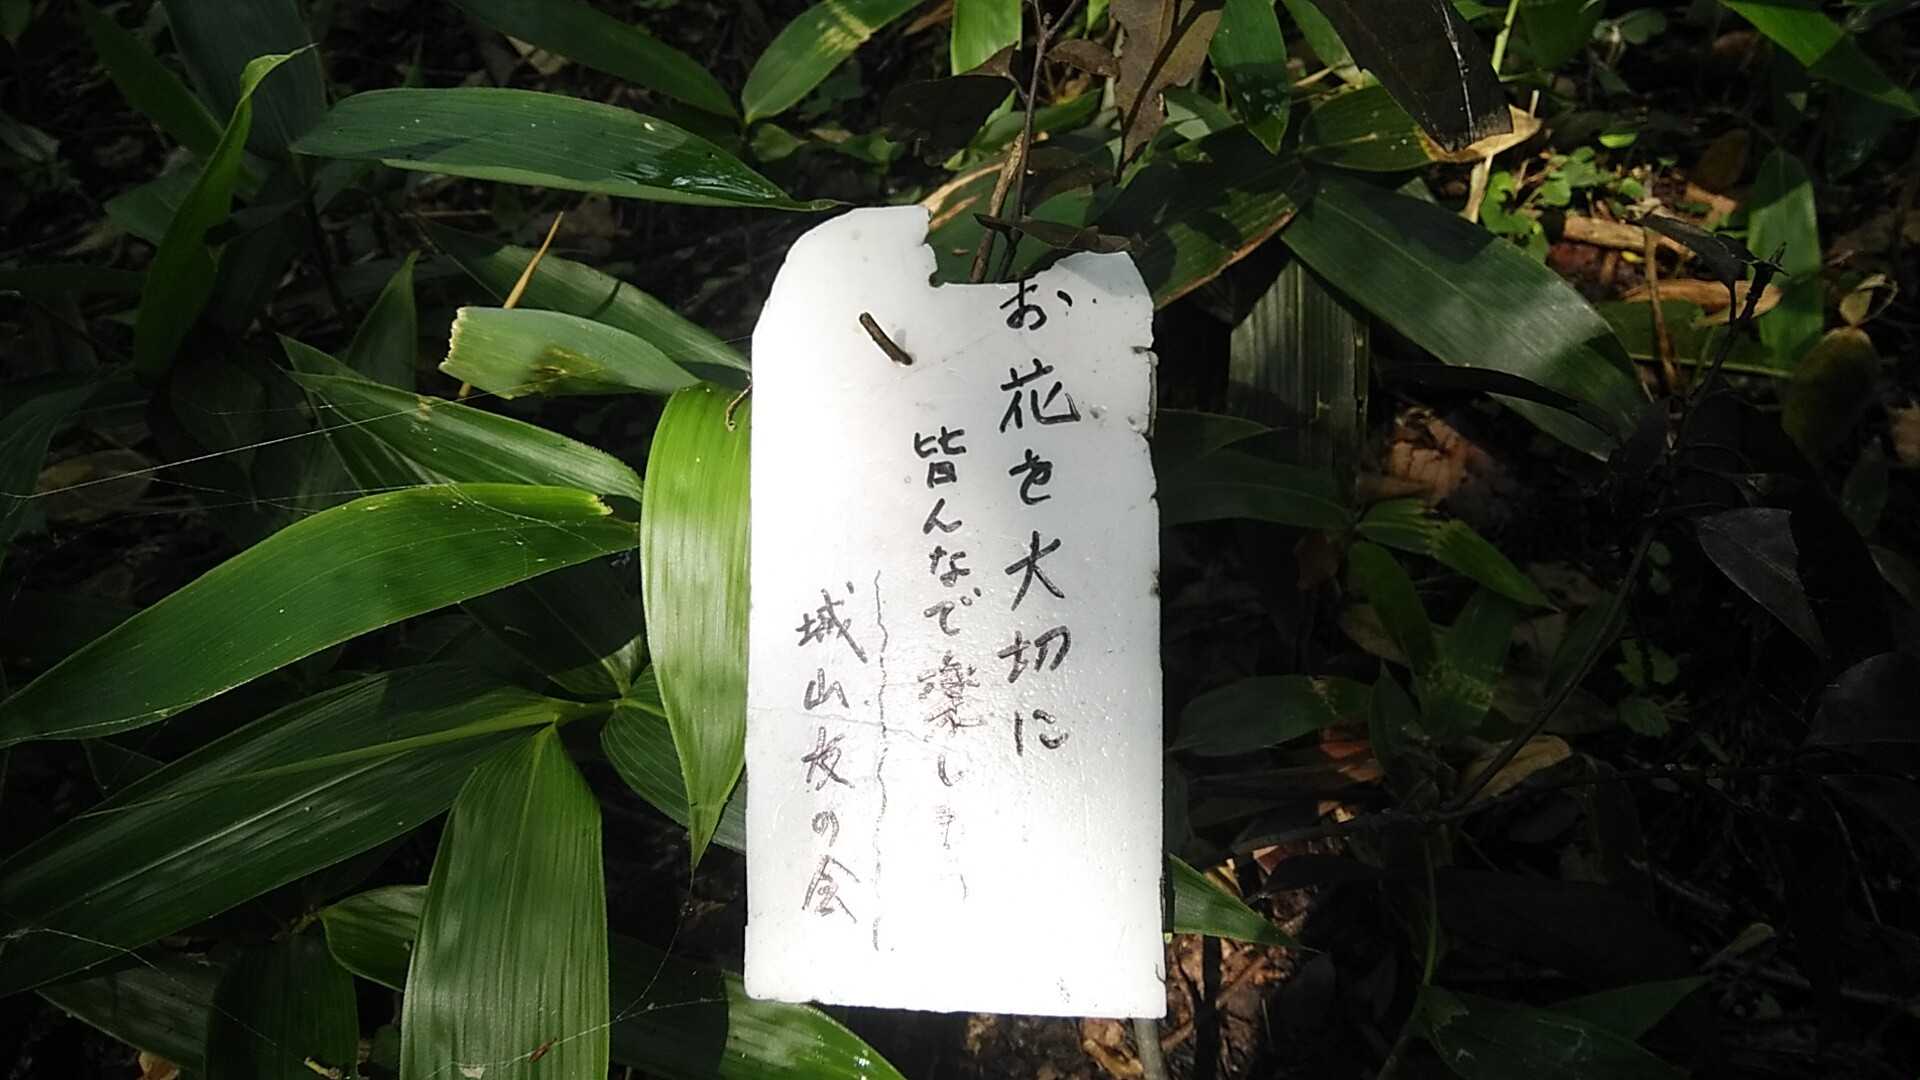 お花を大切に
皆んなで楽しもう
城山友の会